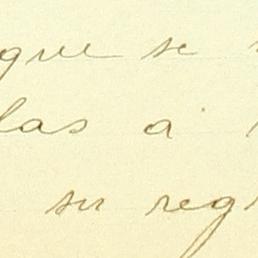 que se
las á
su reg